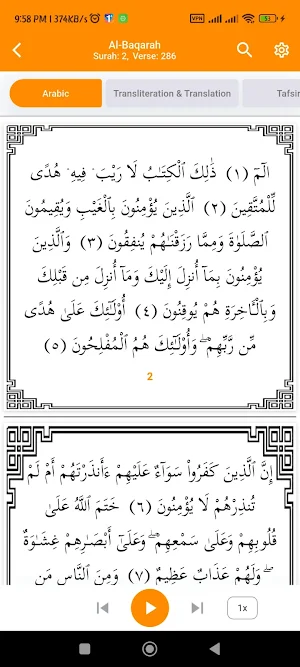 9:58 PM | 374KB/s
VPN
53
Al-Baqarah
Surah: 2, Verse: 286
Arabic
Transliteration & Translation
Tafsir
الٓمٓ ﴿١﴾ ذَٰلِكَ ٱلْكِتَـٰبُ لَا رَيْبَ ۛ فِيهِ ۛ هُدًى
لِّلْمُتَّقِينَ ﴿٢﴾ ٱلَّذِينَ يُؤْمِنُونَ بِٱلْغَيْبِ وَيُقِيمُونَ
ٱلصَّلَوٰةَ وَمِمَّا رَزَقْنَـٰهُمْ يُنفِقُونَ ﴿٣﴾ وَٱلَّذِينَ
يُؤْمِنُونَ بِمَآ أُنزِلَ إِلَيْكَ وَمَآ أُنزِلَ مِن قَبْلِكَ
وَبِٱلْـَٔاخِرَةِ هُمْ يُوقِنُونَ ﴿٤﴾ أُو۟لَـٰٓئِكَ عَلَىٰ هُدًى
مِّن رَّبِّهِمْ ۖ وَأُو۟لَـٰٓئِكَ هُمُ ٱلْمُفْلِحُونَ ﴿٥﴾
2
إِنَّ ٱلَّذِينَ كَفَرُوا۟ سَوَآءٌ عَلَيْهِمْ ءَأَنذَرْتَهُمْ أَمْ لَمْ
تُنذِرْهُمْ لَا يُؤْمِنُونَ ﴿٦﴾ خَتَمَ ٱللَّهُ عَلَىٰ
قُلُوبِهِمْ وَعَلَىٰ سَمْعِهِمْ ۖ وَعَلَىٰٓ أَبْصَـٰرِهِمْ غِشَـٰوَةٌ
ۖ وَلَهُمْ عَذَابٌ عَظِيمٌ ﴿٧﴾ وَمِنَ ٱلنَّاسِ مَن
1x